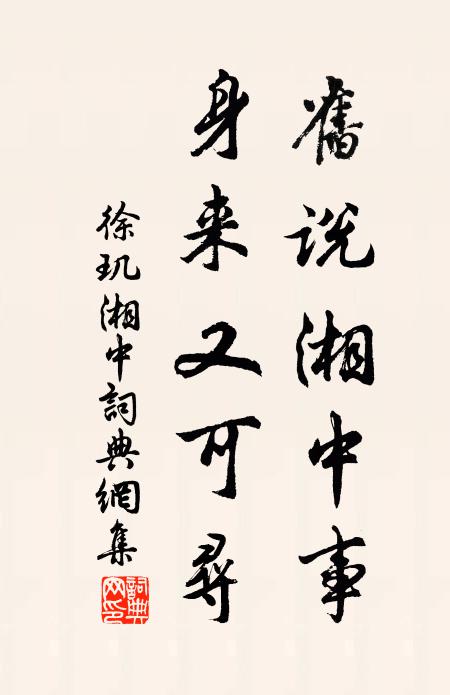 舊説湘中事
身来又可尋
徐玑湘中詞典網集
詞典网印